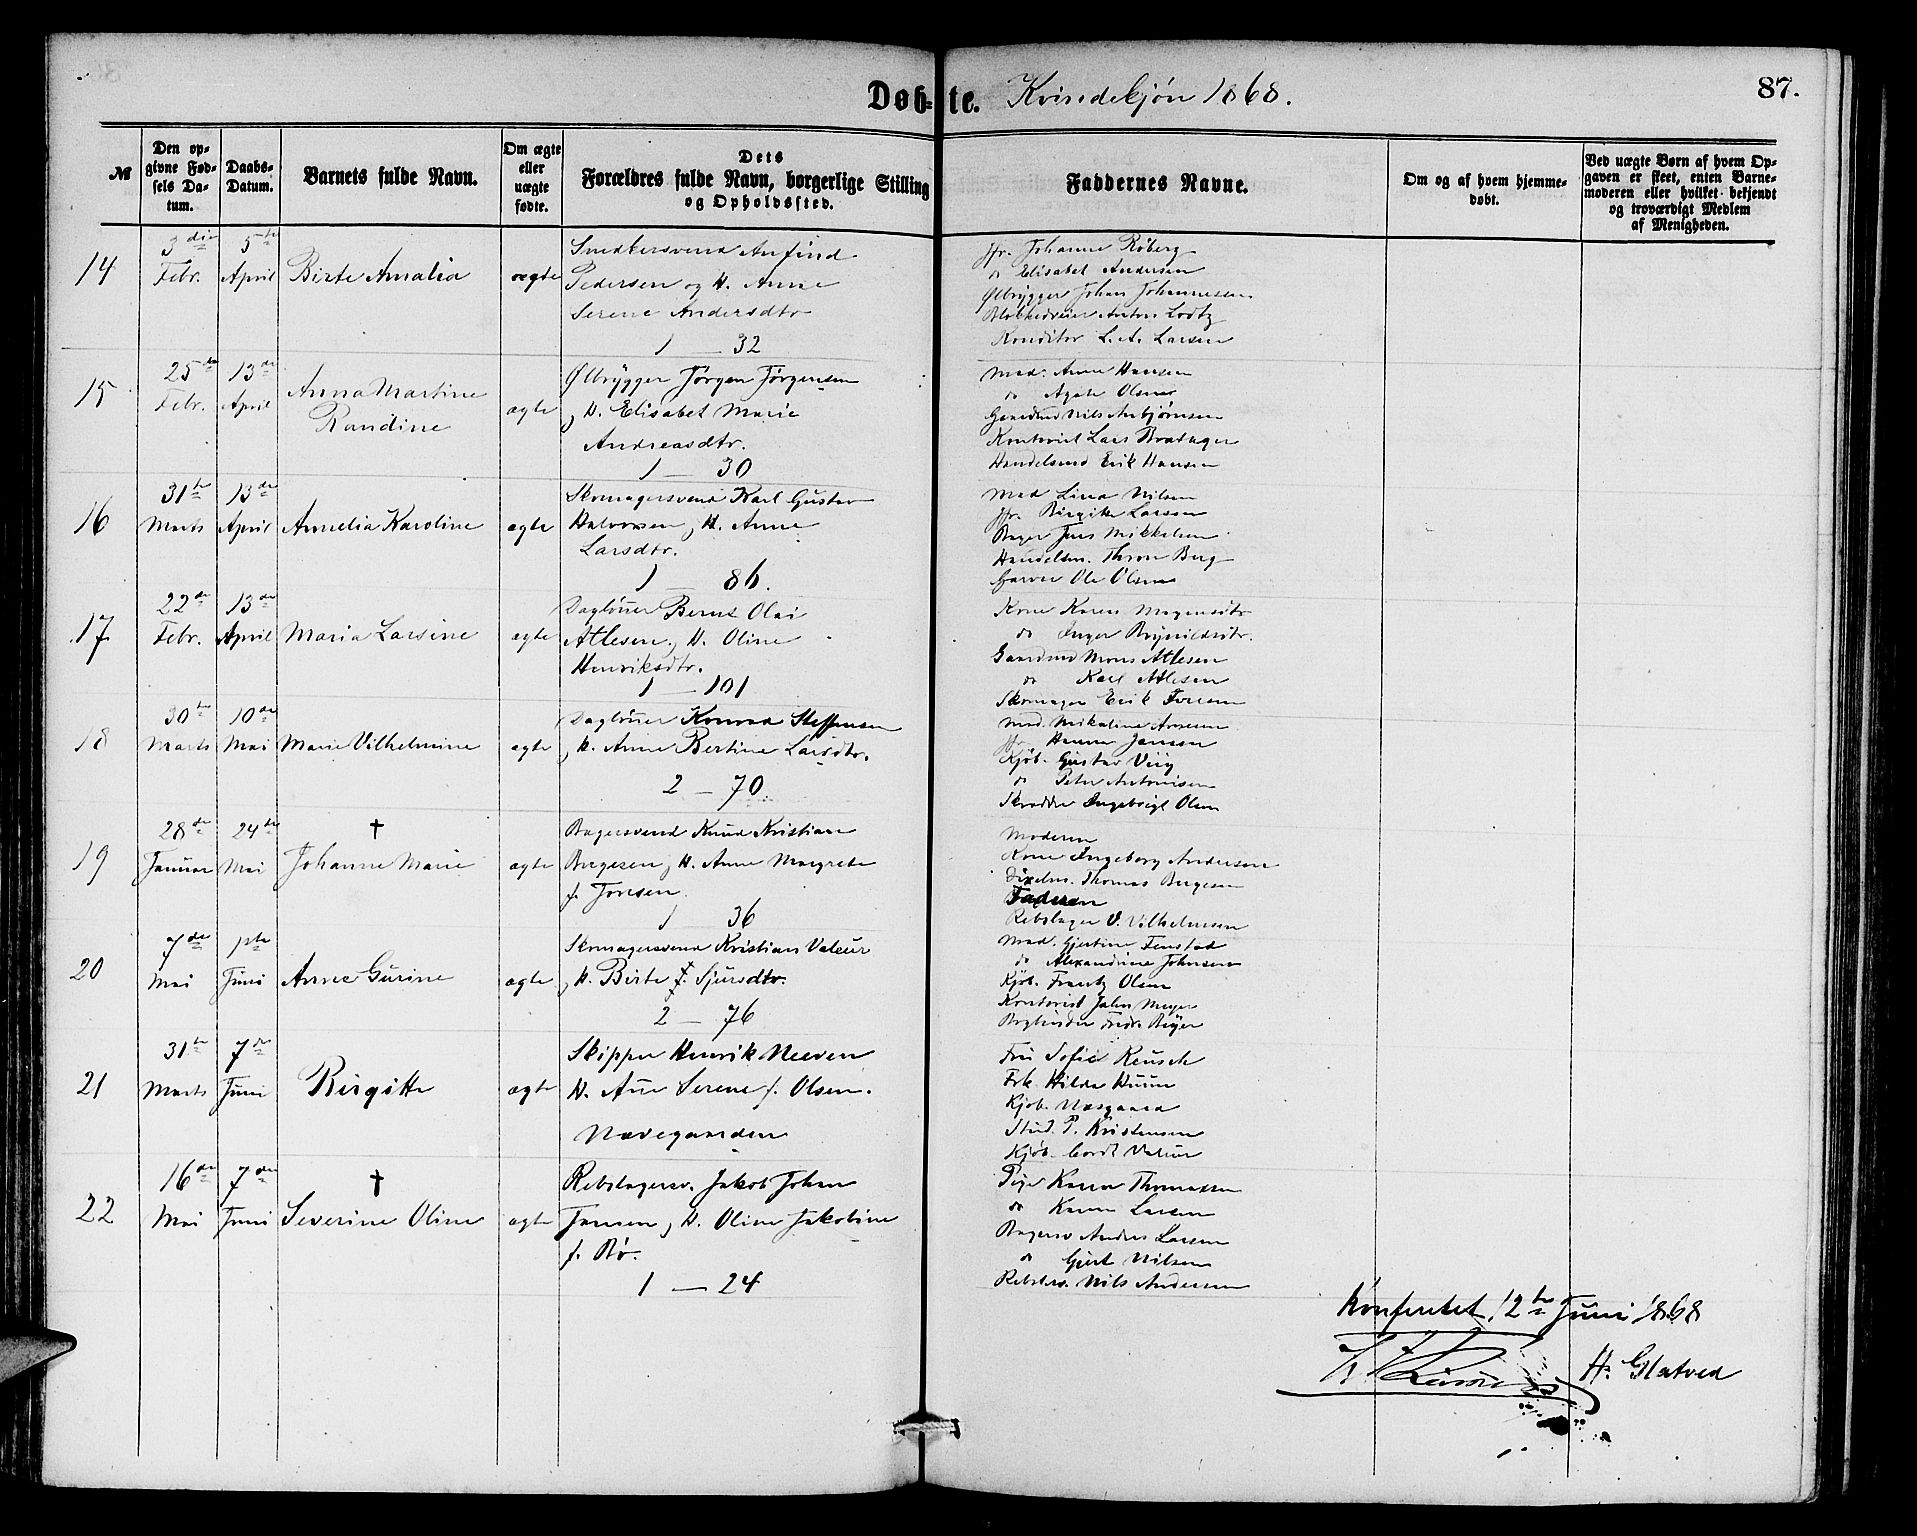 Døb=te. Kvindekjøn 1868.
87.
№
Den opgivne Fødsels Datum.
Daabs-Datum.
Barnets fulde Navn.
Om ægte eller uægte fødte.
Dets Forældres fulde Navn, borgerlige Stilling og Opholdssted.
Faddernes Navne.
Om og af hvem hjemmedøbt.
Ved uægte Børn af hvem Opgaven er skeet, enten Barnemoderen eller hvilket bekjendt og troværdigt Medlem af Menigheden.
14
3die Febr.
5te April
Birte Amalia
ægte
Snedkersvend Anfind
Pedersen og H. Anne
Serene Andersdtr
1 — 32
Jfr. Johanne Röberg
do Elisabet Andersen
Ølbrygger Johan Johannessen
Anton Lodtz
Konditor L. A. Larsen
15
25te Febr.
13de April
Anna Martine
Randine
ægte
Ølbrygger Jörgen Jörgensen
, H. Elisabet Marie
Andreasdtr.
1 — 30
Mad. Anne Hansen
do Agate Olsen
Gaardmd Nils Anbjørnsen
Kontorist Lars
Handelsmd Erik Hansen
16
31te Marts
13de April
Amelia Karoline
ægte
Skomagersvend Karl Gustav
Halvorsen, H. Anne
Larsdtr.
1 — 86.
Mad Lina Nilsen
Jfr. Birgitte Larsen
Bager Jens Mikkelsen
Handelsm. Thron Berg
Garver Ole Olsen
17.
22de Febr.
13de April
Maria Larsine
ægte
Daglönner Bernt Olai
Atlesen, H. Oline
Henriksdtr.
1 — 101
Kone Karen Mogensdtr
do Inger Brynildsdtr.
Gaardmd Mons Atlesen
do Karl Atlesen
Skomager Erik Iversen
18
30te Marts
10de Mai
Marie Vilhelmine
ægte
Daglönner Konrad Steffensen
, H. Anne Bertine Larsdtr.
2 — 70.
Mad. Nikoline Arnesen
Jfr. Hanna Jansen
Kjöb. Gustav Viig
do Peter Antonisen
Skrædder Ingebrigt Olsen
19
28de Januar
24de Mai
†
Johanne Marie
ægte
Bagersvend Knud Kristian
Bergesen, H. Anne Margrete
f. Jonsen.
1 36
Moderen
Kone Ingeborg Andersen
Dixelm. Thomas Bergesen
Faderen
Rebslager V. Vilhelmsen
20
7de Mai
1ste Juni
Anne Gurine
ægte
Skomagersvend Kristian Valeur
, H. Birte f. Sjursdtr.
2 — 76
Mad. Gjertine Fenstad
do Alexandrine Johnsen
Kjöb. Frantz Olsen
Kontorist John Meyer
Bogbinder Fredr. Beyer
21
31te Marts
7de Juni
Birgitte
ægte
Skipper Henrik Neeven
H. Ane Serene f. Olsen.
Nævegaarden
Fru Sofie Reusch
Frk. Hilda Huun
Kjöb. Næsgaard
Stud. P. Kristensen
Kjöb. Cordt Valeur
22
16de Mai
7de Juni
†
Severine Oline
ægte
Rebslagersv. Jakob Johan
Jansen, H. Oline Jakobine
f. Bö.
1 — 24
Pige Karen Thomassen
do Karen Larsen
Bagersv Andreas Larsen
do Gjert Nilsen
Rebslsv. Nils Andersen
Konfereret 12te Juni 1868
H. Glatved